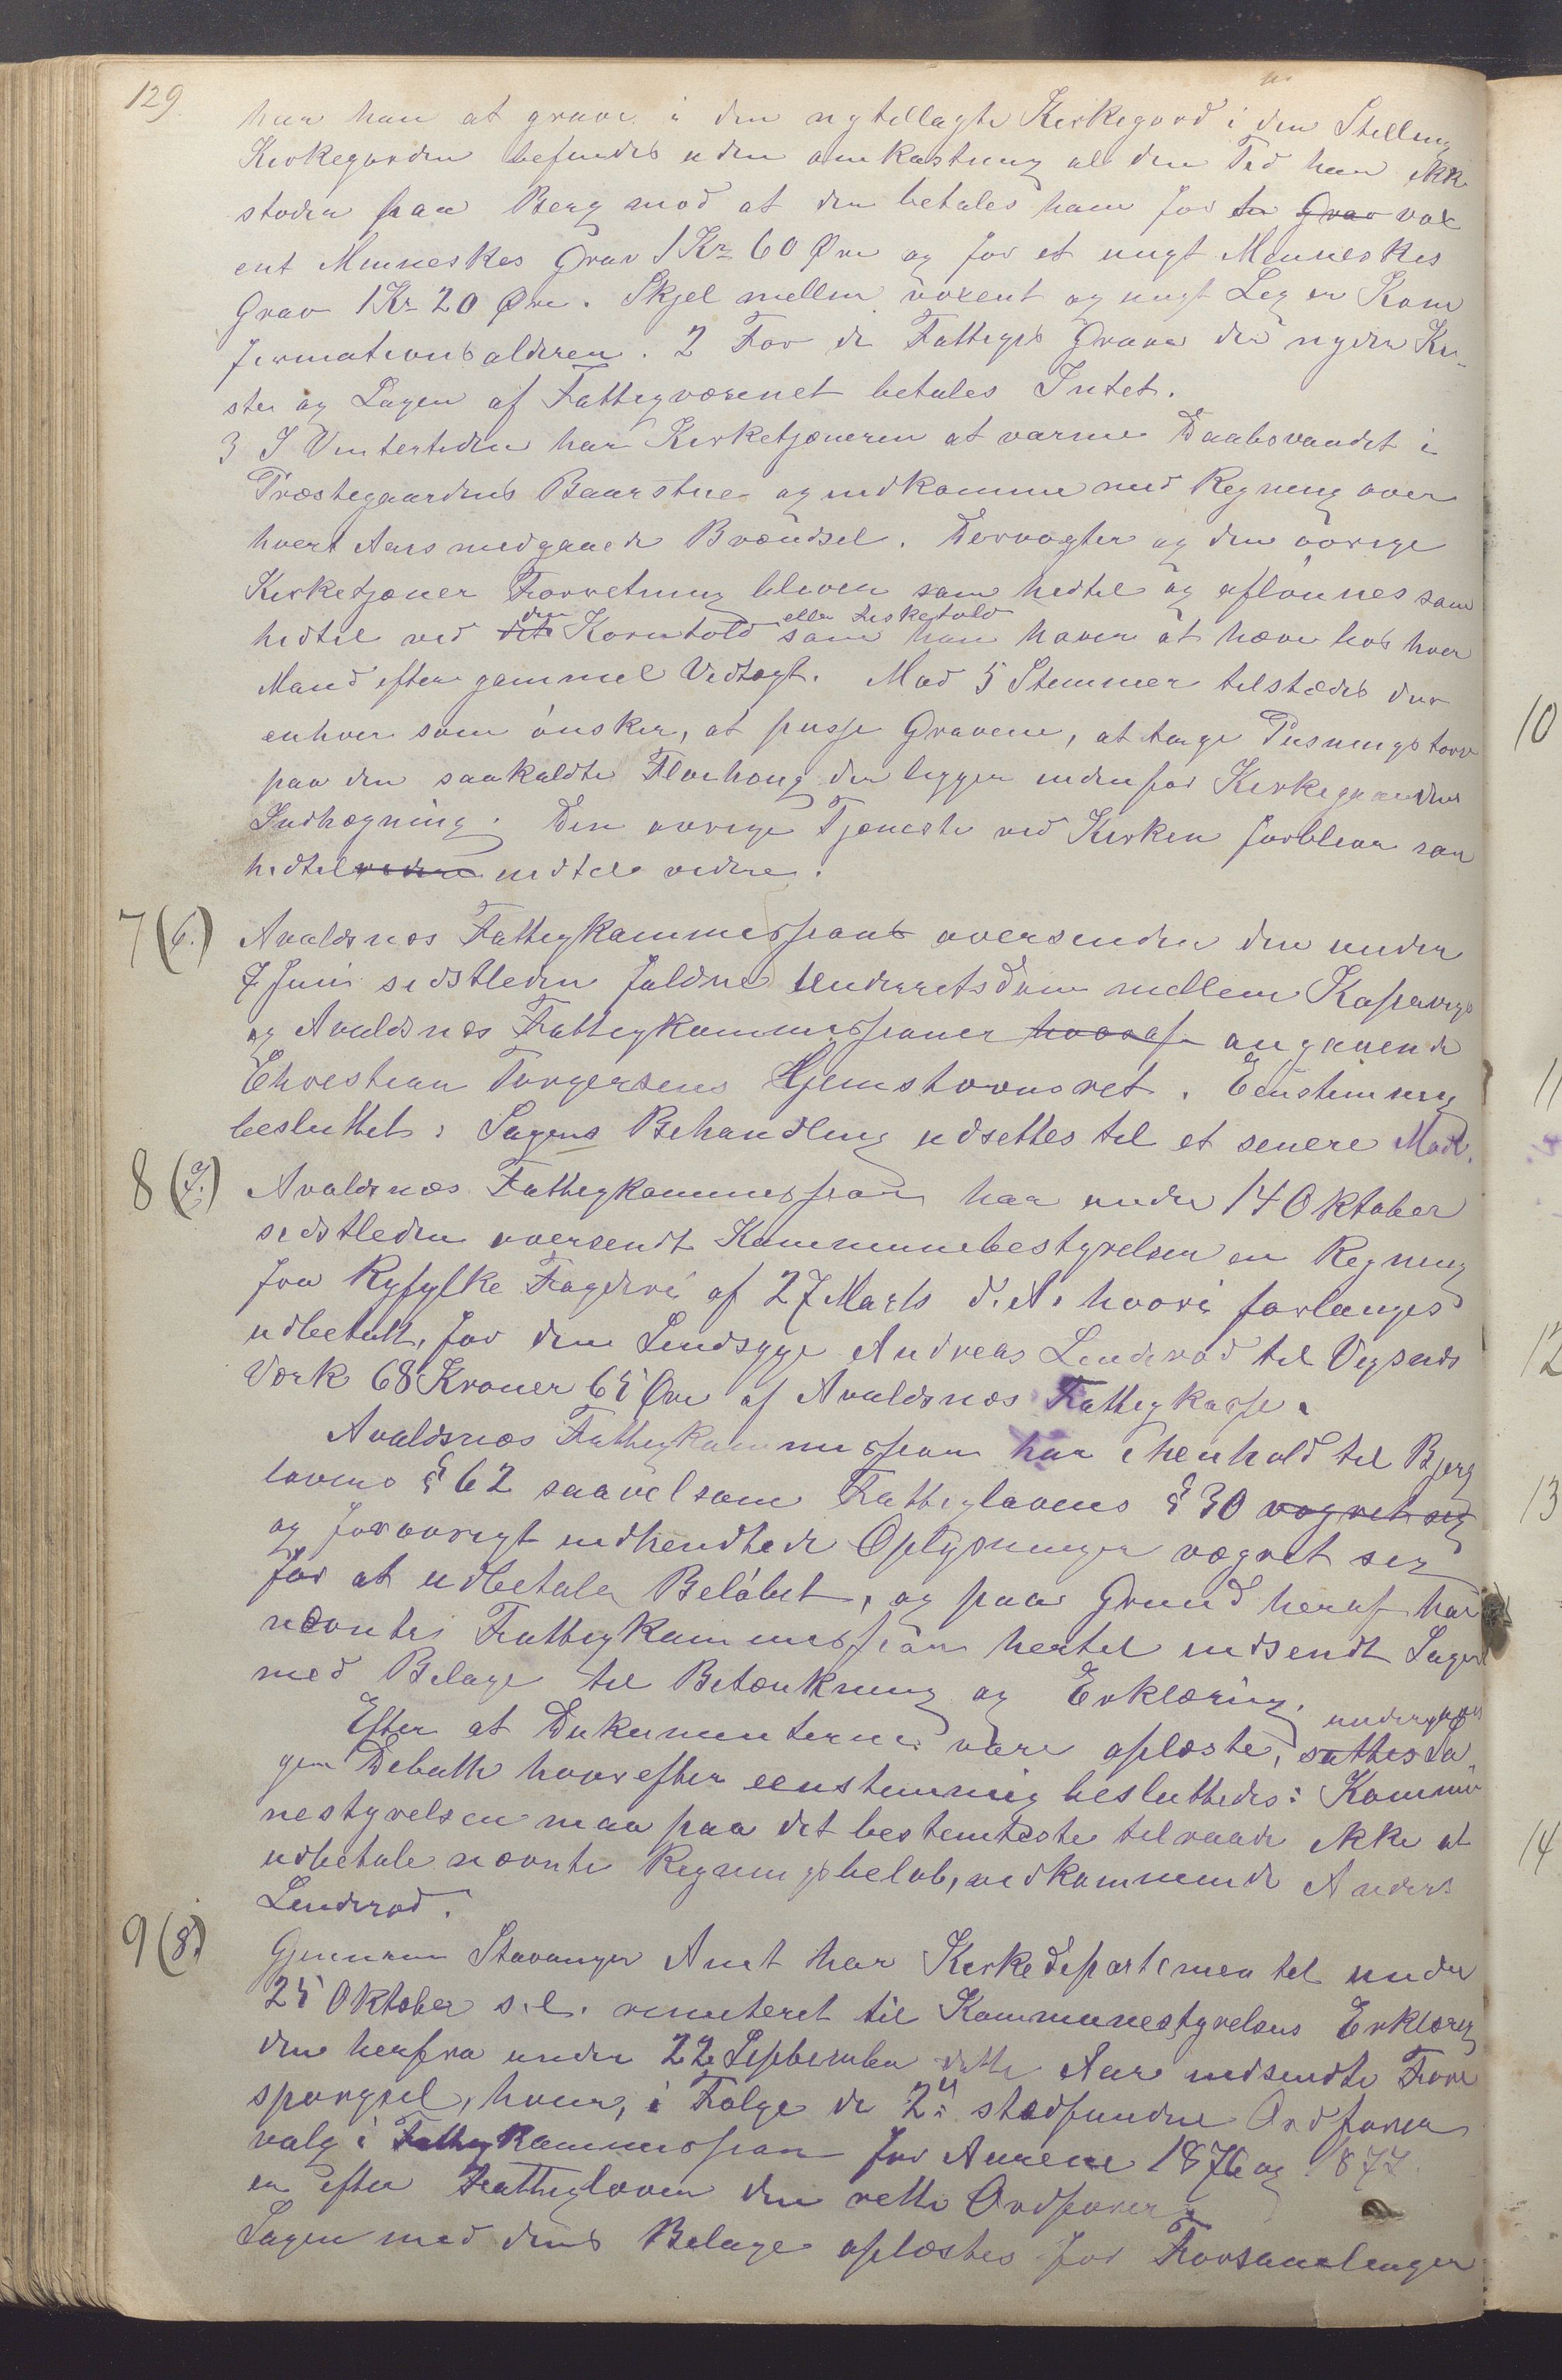 129.
har han at grave i den nytillagte Kirkegord i den Stelling
Kirkegorden befindes uden omkastning al den Tid han ikke
støder paa Berg mod at der betales ham for en Grav vox
ent Menneskes Grav 1 Kr 60 Øre og for et ungt Menneskes
Grav 1 Kr 20 Øre. Skjel mellem voxent og ungt Leg er Kom
firmationsalderen. 2 For de Fattiges Grave der nyder Ki-
ster og Lagen af Fattigvæsenet betales Intet.
3 I Vintertiden har Kirketjeneren at varme Daabsvandet i
Præstegaardens Baarstue og indkomme med Regning over
hvert Aars medgaaede Brændsel. Dørvogter og den øvrige
Kirketjener Forretning bliver som hidtil og aflønnes som
den eller Fisketold
hidtil ved det Korntold som han haver at hæve hos hver
Mand efter gammel Vedtægt. Mod 5 Stemmer tilstædes der
enhver som ønsker, at pusse Gravene, at tage Pusningstorv
paa den saakaldte Floehoug der ligger indenfor Kirkegaardens
Indhegning. Den øvrige Tjeneste ved Kirken forbliver som
hidtil videre indtil videre.
7 (6.) Avaldsnes Fattigkommissions oversender den under
7 Juni sidstleden faldne Underretsdom mellem Kopervigs
og Avaldsnes Fattigkommissioner hvoraf angaaende
Christian Torgersens Hjemstavnsret. Eenstemmig
besluttet: Sagens Behandling udsettes til et senere Mød.
8 (7.) Avaldsnes Fattigkommission har under 14 Oktober
sidstleden oversendt Kommunebestyrelsen en Regning
fra Ryfylke Fogderi af 27 Marts d. A. hvori forlanges
udbetalt, for den Sindsyge Andreas Linderod til Vigsnes
Værk 68 Kroner 65 Øre af Avaldsnes Fattigkasse.
Avaldsnes Fattigkommission har i henhold til Bjerg
lovens § 62 saavelsom Fattiglovens § 30 vægret sig
og forøvrigt indhendtede Oplysninger vægret sig
for at udbetale Beløbet, og paa Grund heraf har
nævnte Fattigkommission hertil indsendt Sagen
med Bilage til Betænkning og Erklæring.
undergives
Efter at Dokumenterne vare oplæste, sattes Sa
gen Debatte hvorefter eenstemmig besluttedes: Kommu
nestyrelsen maa paa det bestemteste tilraade ikke at
udbetale nævnte Regningsbeløb, vedkommende Anders
Linderod.
9 (8.) Gjennem Stavanger Amt har Kirkedepartementet under
25 Oktober s. l. remiteret til Kommunestyrelsens Erklæring
den herfra under 22 September dette Aar indsendte Fore
spørgsel, hvem, i Følge de 2de stedfundne Ordfører
valg i Fattigkommission for Aarene 1876 og 1877
er efter Fattigloven den rette Ordfører.
Sagen med dens Bilage oplæstes for Forsamlingen
10
11
12
13
14